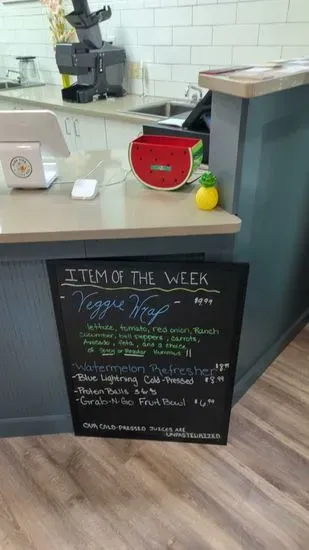 ITEM OF THE WEEK
- Veggie Wrap - $9.99
lettuce, tomato, red onion, Ranch
cucumber, bell peppers, carrots,
Avocado, feta, and a choice
of Spicy or Regular Hummus !!
-Watermelon Refresher $8.99
-Blue Lightning Cold-Pressed $8.99
-Protein Balls
-Grab-N-Go Fruit Bowl $6.99
OUR COLD-PRESSED JUICES ARE
UNPASTEURIZED